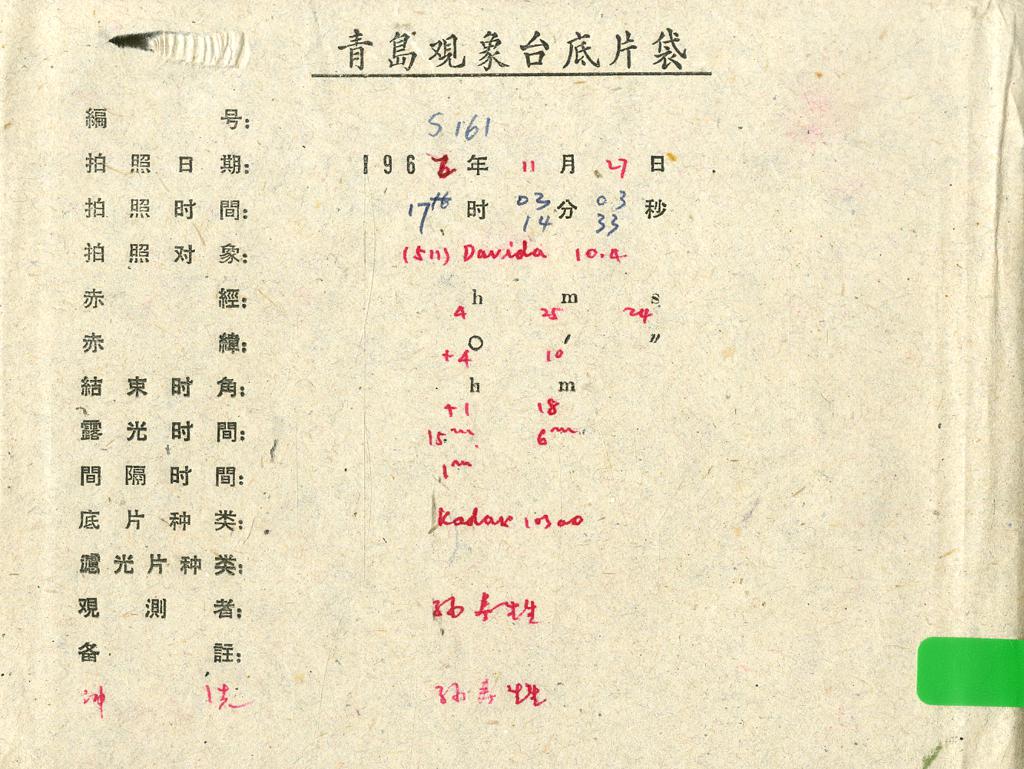 青島观象台底片袋
編号: S161
拍照日期: 196 年 11 月 27 日
拍照时間: 17 时 03 分 03 秒
14 33
拍照对象: (511) Davida 10.4
赤經: 4 h 25 m 24 s
赤緯: +4 ° 10 ′ ″
結束时角: +1 h 18 m
露光时間: 15m 6m
間隔时間: 1m
底片种类: Kodak 103aO
濾光片种类:
观測者: 孙寿
备註:
冲洗 孙寿